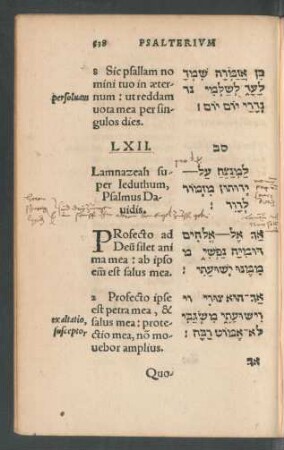 638 PSALTERIVM
8 Sic psallam no
mini tuo in æter-
num : ut reddam
uota mea per sin-
gulos dies.
persoluam
כן אזמרה שמך
לעד לשלמי נד
נדרי יום יום :
LXII.
סב
Lamnazeah su-
per Ieduthum,
Psalmus Da-
uidis.
למנצח על
ידותון מזמור
לדוד :
PRofecto ad
Deũ silet ani
ma mea : ab ipso
em̃ est salus mea.
אך אל אלהים
דומיה נפשי
ממנו ישועתי :
2 Profecto ipse
est petra mea, &
salus mea : prote-
ctio mea, nõ mo-
uebor amplius.
exaltatio,
susceptor
אך הוא צורי וי
וישועתי משגבי
לא אמוט רבה :
Quo-
אך